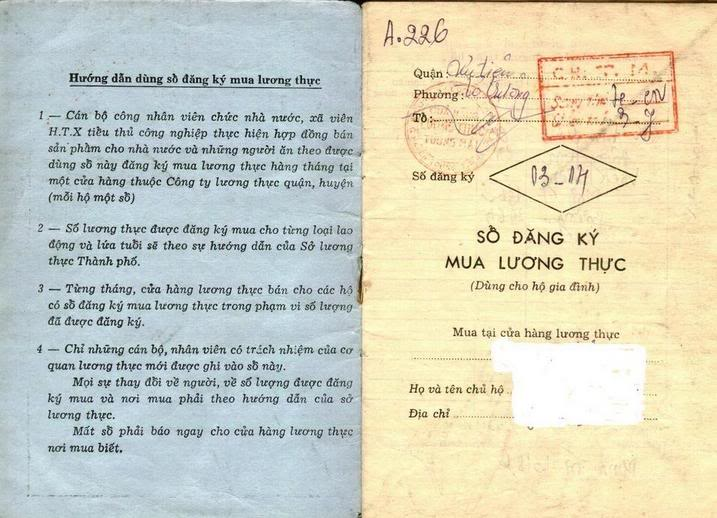 Hướng dẫn dùng sổ đăng ký mua lương thực
1 — Cán bộ công nhân viên chức nhà nước, xã viên
H.T.X tiểu thủ công nghiệp thực hiện hợp đồng bán
sản phẩm cho nhà nước và những người ăn theo được
dùng sổ này đăng ký mua lương thực hàng tháng tại
một cửa hàng thuộc Công ty lương thực quận, huyện
(mỗi hộ một sổ)
2 — Số lương thực được đăng ký mua cho từng loại lao
động và lứa tuổi sẽ theo sự hướng dẫn của Sở lương
thực Thành phố.
3 — Từng tháng, cửa hàng lương thực bán cho các hộ
có sổ đăng ký mua lương thực trong phạm vi số lượng
đã được đăng ký.
4 — Chỉ những cán bộ, nhân viên có trách nhiệm của cơ
quan lương thực mới được ghi vào sổ này.
Mọi sự thay đổi về người, về số lượng được đăng
ký mua và nơi mua phải theo hướng dẫn của sở
lương thực.
Mất sổ phải báo ngay cho cửa hàng lương thực
nơi mua biết.
A.226
Quận:
Phường:
Tổ:
Số đăng ký 03-14
SỔ ĐĂNG KÝ
MUA LƯƠNG THỰC
(Dùng cho hộ gia đình)
Mua tại cửa hàng lương thực
Họ và tên chủ hộ
Địa chỉ